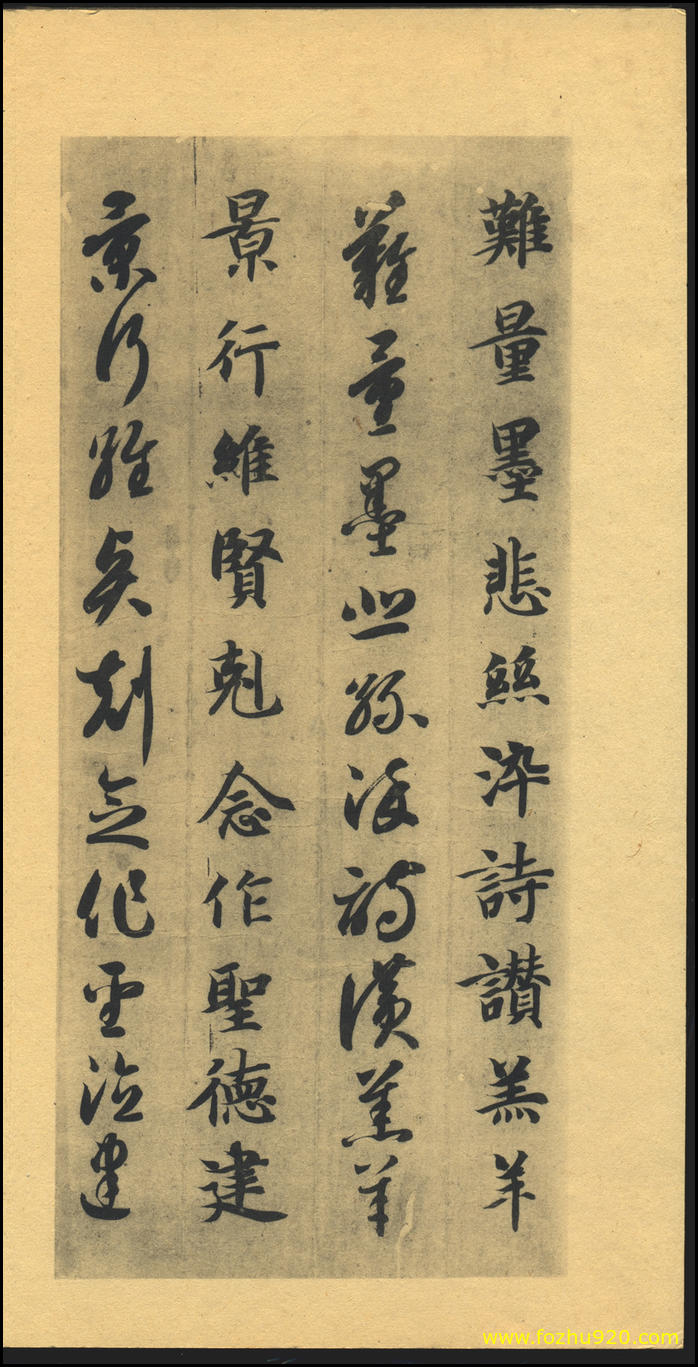 難量墨悲絲染詩讃羔羊
難量墨悲絲染詩讃羔羊
景行維賢剋念作聖德建
景行維賢剋念作聖德建
www.fozhu920.com